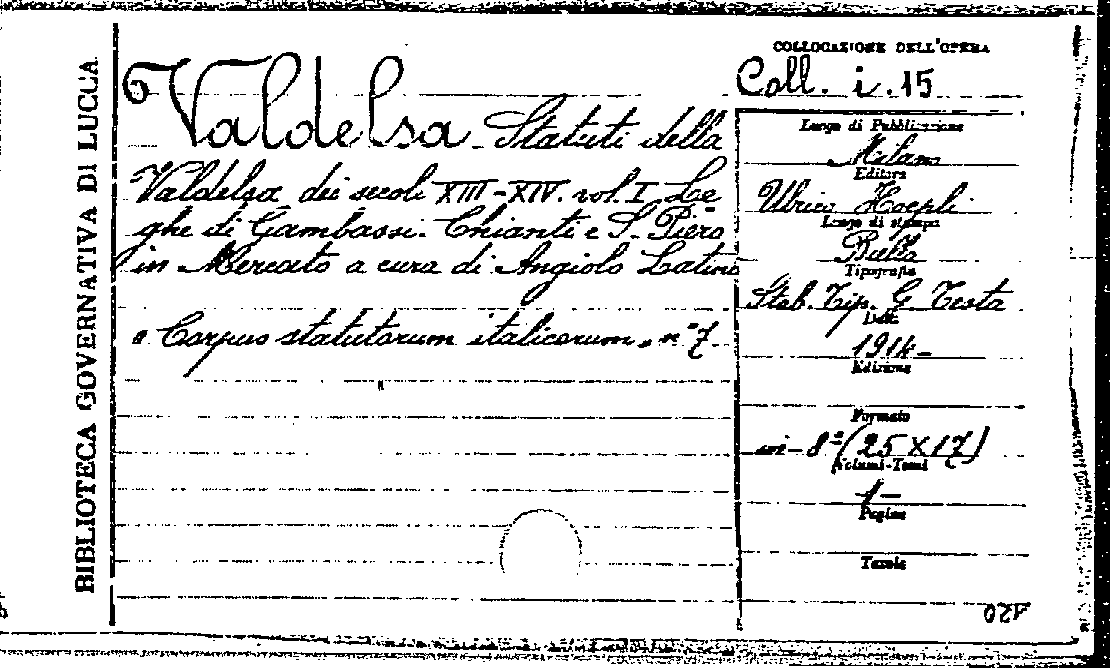 BIBLIOTECA GOVERNATIVA DI LUCCA
Valdelsa - Statuti della
Valdelsa dei secoli XIII-XIV. vol. I Le
ghe di Gambassi. Chianti e S. Piero
in Mercato a cura di Angiolo Latini
"Corpus statutorum italicorum" n° 7.
COLLOCAZIONE DELL'OPERA
Coll. i. 15
Luogo di Pubblicazione
Milano
Editore
Ulrico Hoepli
Luogo di stampa
Biella
Tipografia
Stab. Tip. G. Testa
Data
1914-
Edizione
Formato
in-8° (25 X 17)
Volumi-Tomi
1-
Pagine
Tavole